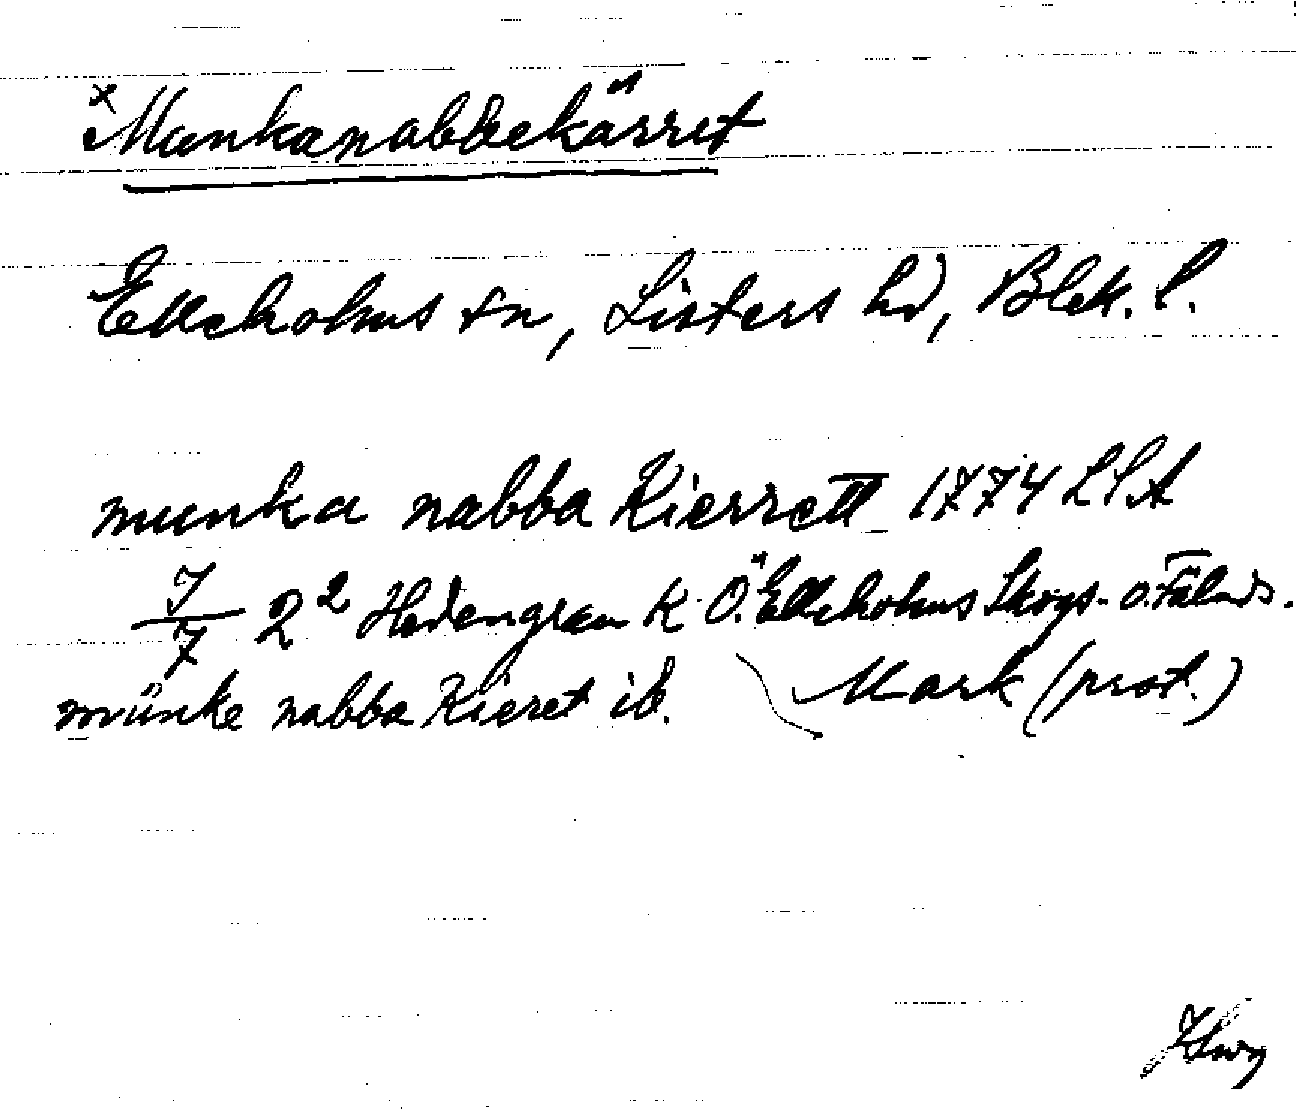 x Munkanabbekärret
Elleholms sn, Listers hd, Blek. l.
munka nabba Kierrett 1774 LSA
7/7 2² Hedengran K Ö. Elleholms Skogs- o. Fälads.
münke nabba Kieret ib. Mark (prot.)